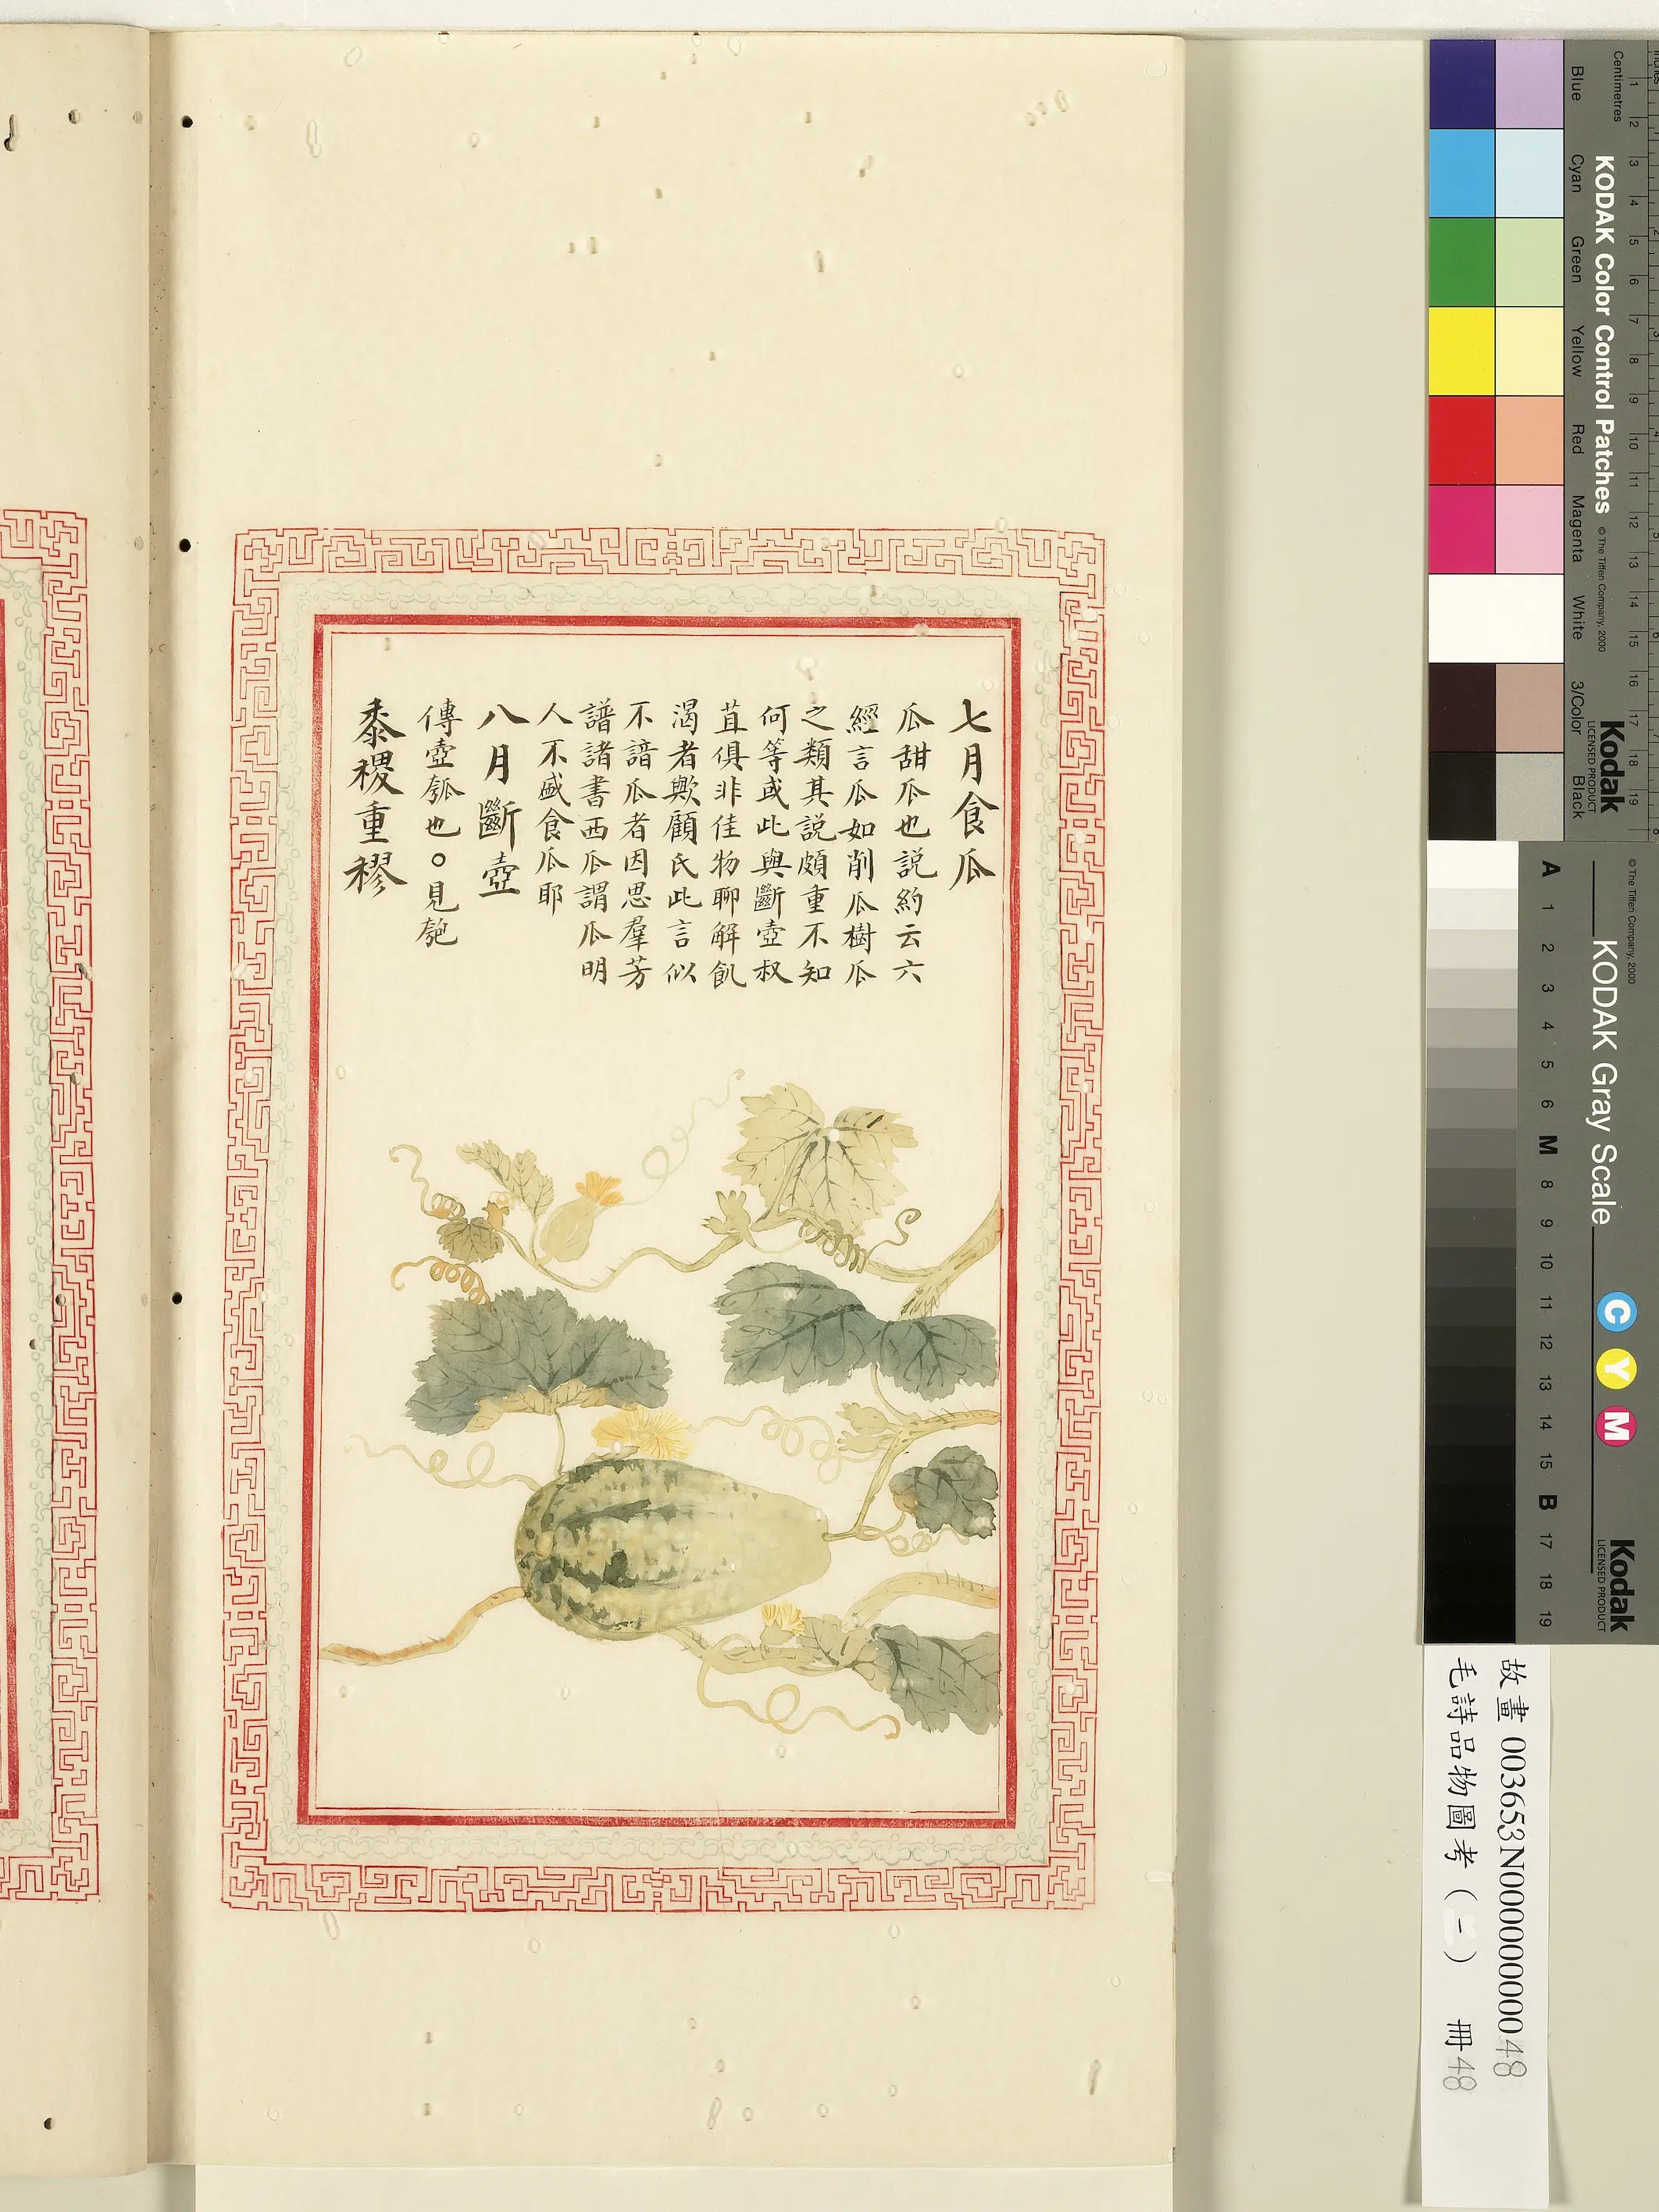 七月食瓜
瓜甜瓜也説約云六
經言瓜如削瓜樹瓜
之類其説頗重不知
何等或此與斷壺叔
苴俱非佳物聊解飢
渴者歟顧氏此言似
不諳瓜者因思羣芳
譜諸書西瓜謂瓜明
人不盛食瓜耶
八月斷壺
傳壺瓠也○見匏
黍稷重穋
故畫 003653N000000000048
毛詩品物圖考(一) 冊48
Centimetres
KODAK Color Control Patches
© The Tiffen Company, 2000
Kodak
LICENSED PRODUCT
Blue
Cyan
Green
Yellow
Red
Magenta
White
3/Color
Black
1 2 3 4 5 6 7 8 9 10 11 12 13 14 15 16 17 18 19
© The Tiffen Company, 2000
KODAK Gray Scale
C Y M
Kodak
LICENSED PRODUCT
A 1 2 3 4 5 6 M 8 9 10 11 12 13 14 15 B 17 18 19